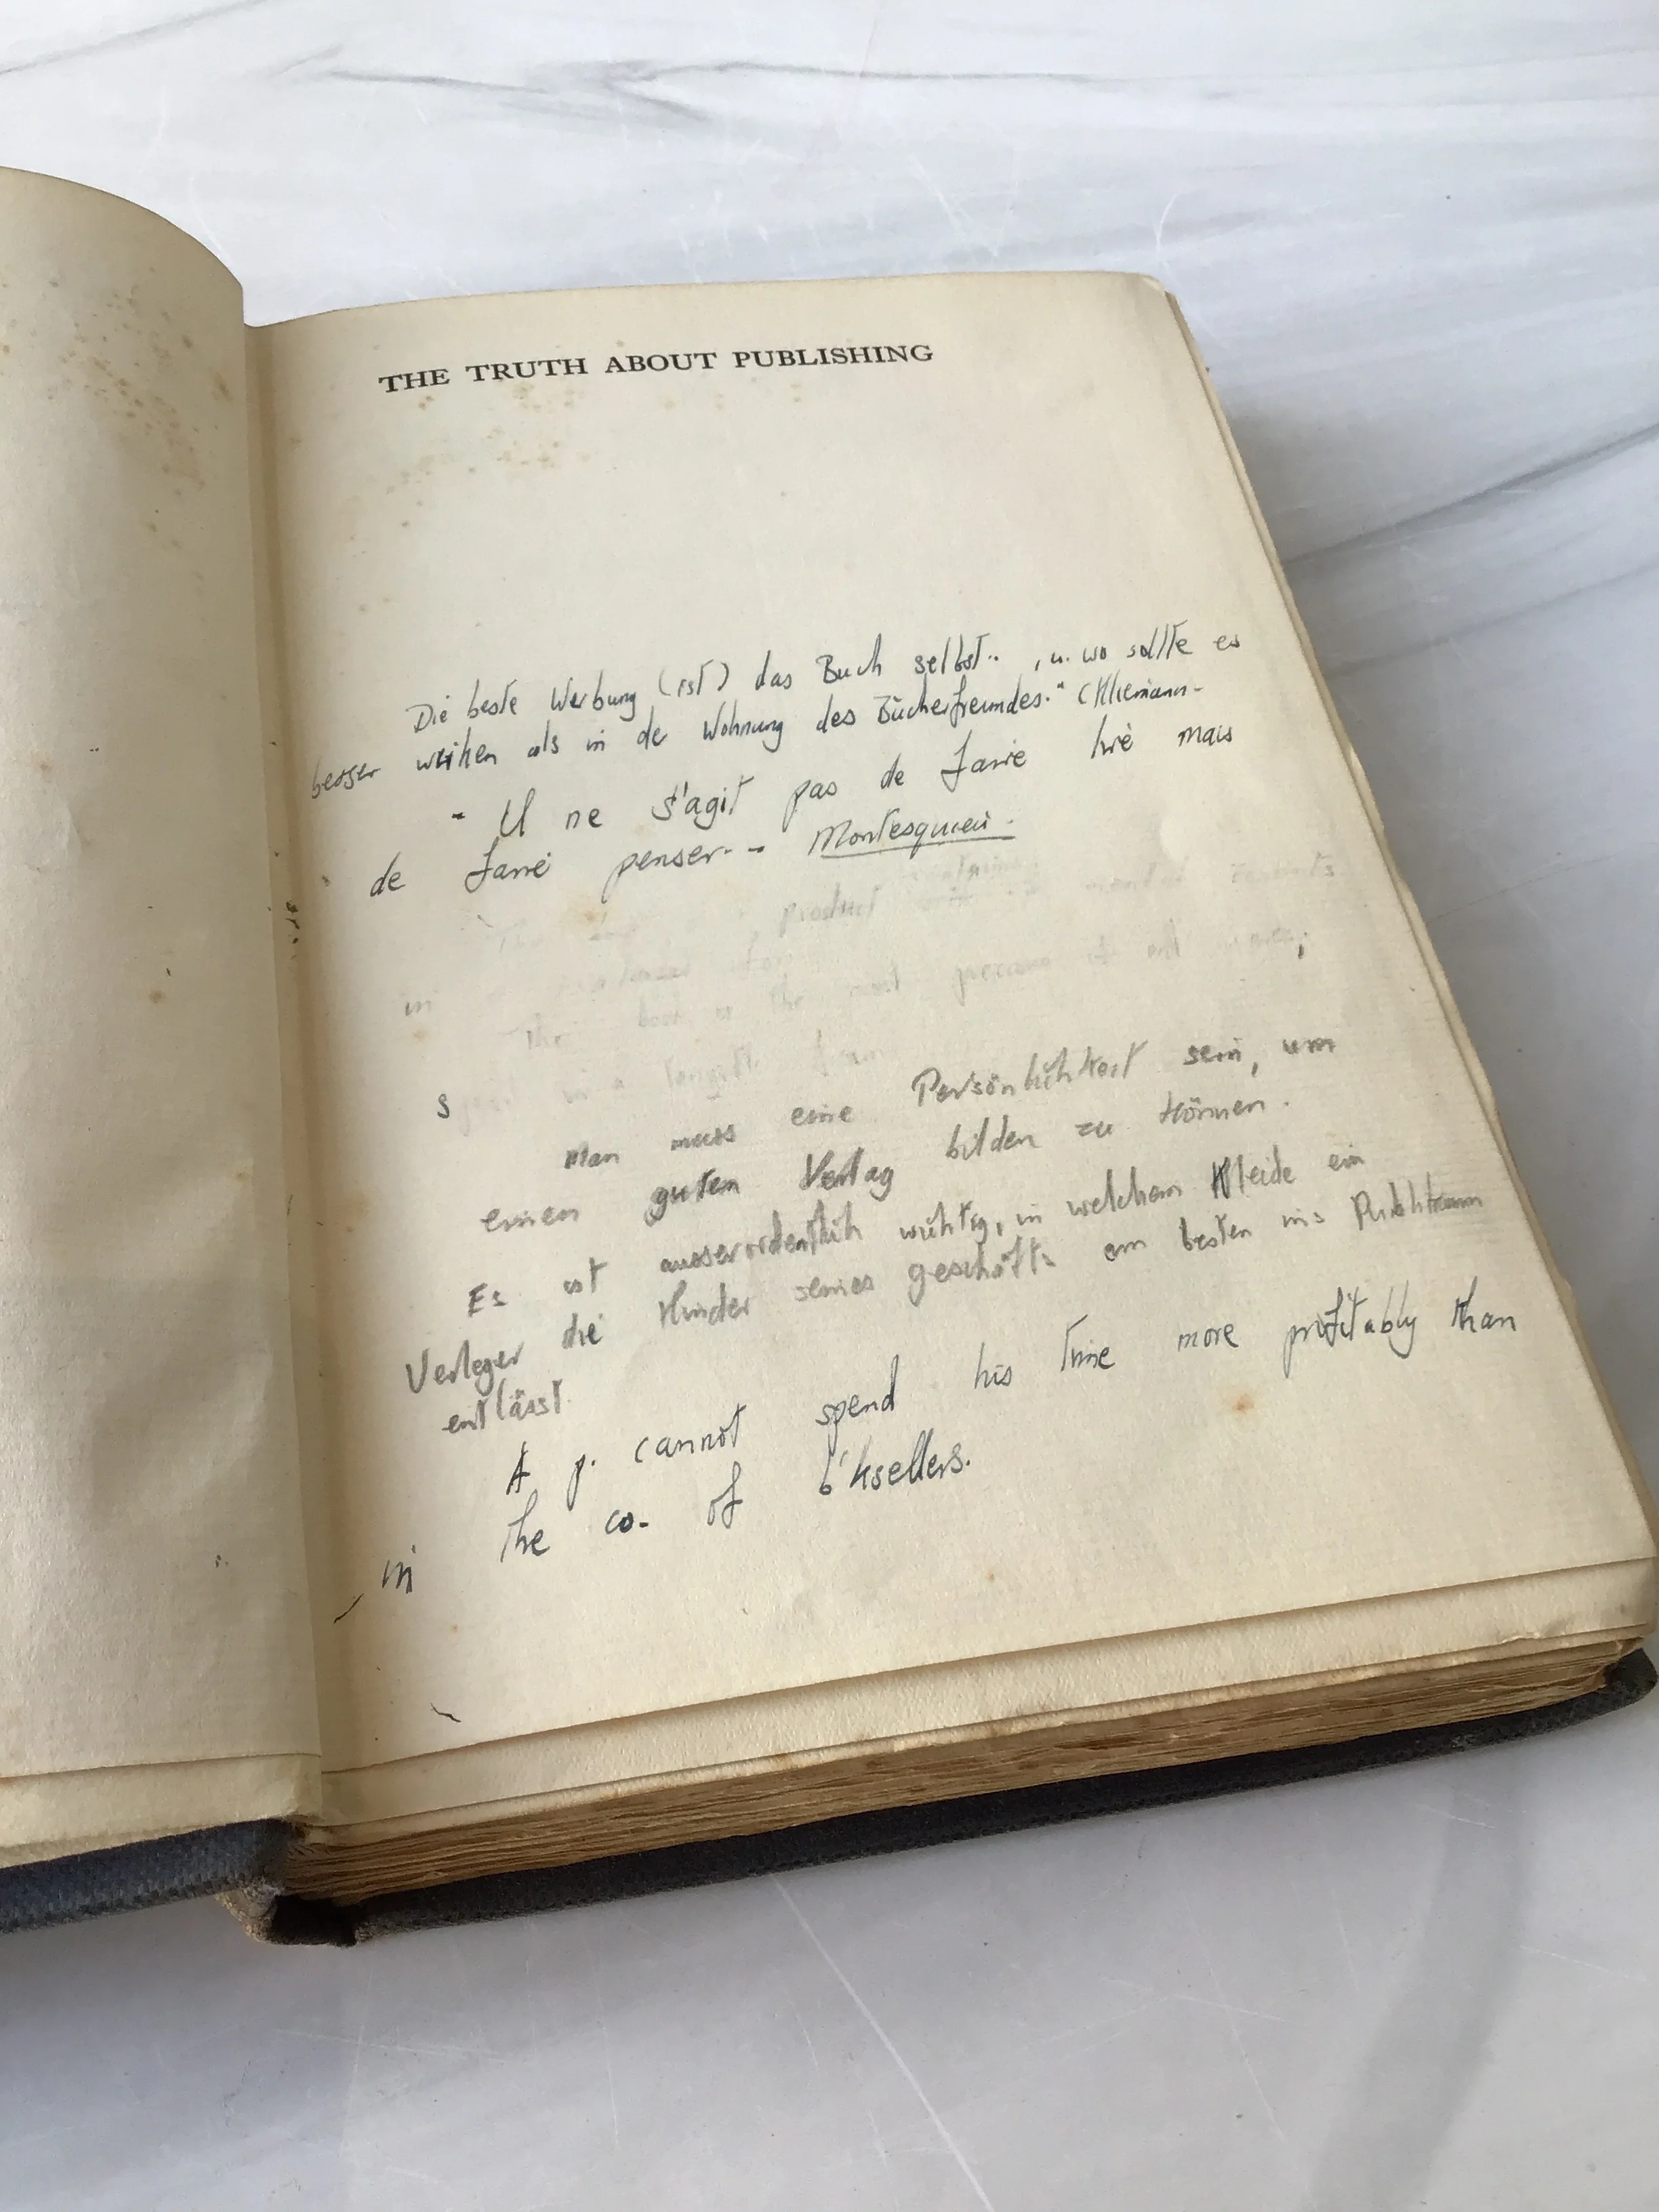 THE TRUTH ABOUT PUBLISHING
Die beste Werbung (ist) das Buch selbst.. , u. wo sollte es
besser wirken als in der Wohnung des Bücherfreundes." (Kliemann-
- Il ne s'agit pas de faire lire mais
de faire penser-- Montesquieu.
product mental
in
The book is the most precious of all
in a
Man muss eine Persönlichkeit sein, um
einen guten Verlag bilden zu können.
Es ist ausserordentlich wichtig, in welchem Kleide ein
Verleger die Kinder seines geschäfts am besten ins Publikum
entlässt.
A p. cannot spend his time more profitably than
in the co. of b'ksellers.